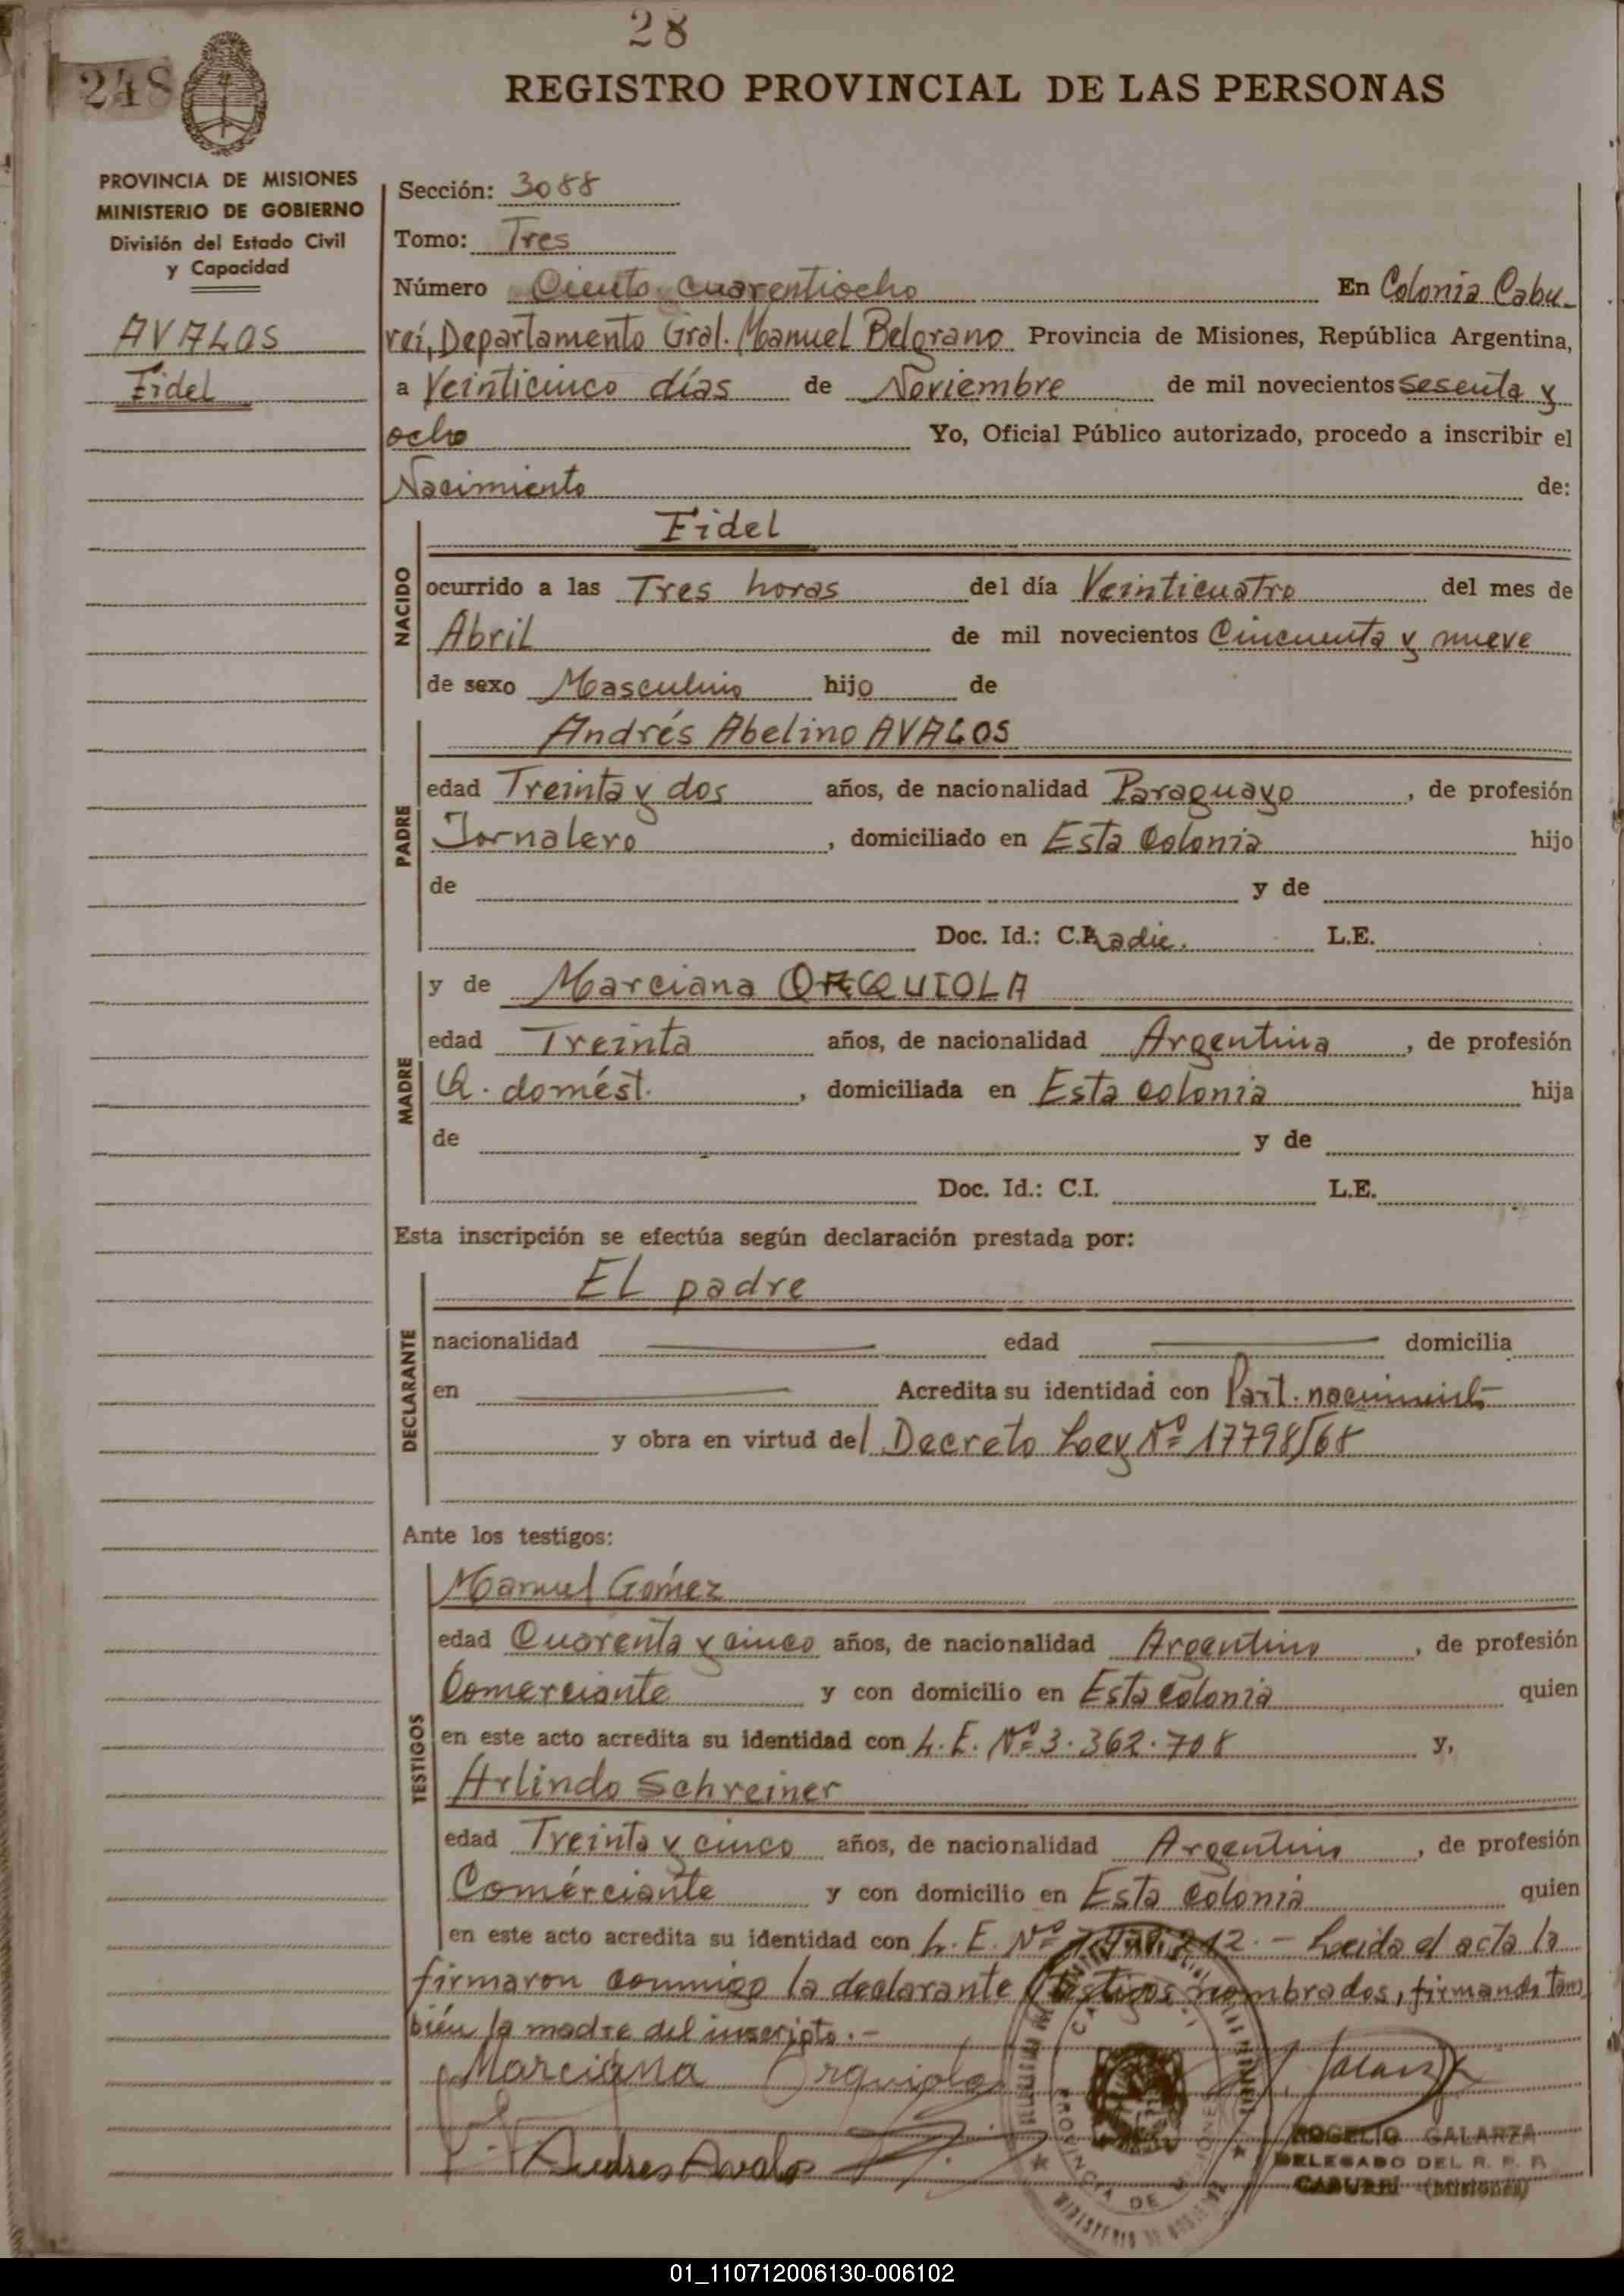 28
248
REGISTRO PROVINCIAL DE LAS PERSONAS
PROVINCIA DE MISIONES
MINISTERIO DE GOBIERNO
División del Estado Civil
y Capacidad
AVALOS
Fidel
Sección: 3088
Tomo: Tres
Número Ciento cuarentiocho En Colonia Cabu-
reí, Departamento Gral. Manuel Belgrano Provincia de Misiones, República Argentina,
a Veinticinco días de Noviembre de mil novecientos sesenta y
ocho Yo, Oficial Público autorizado, procedo a inscribir el
Nacimiento de:
NACIDO
Fidel
ocurrido a las Tres horas del día Veinticuatro del mes de
Abril de mil novecientos Cincuenta y nueve
de sexo Masculino hijo de
PADRE
Andrés Abelino AVALOS
edad Treinta y dos años, de nacionalidad Paraguayo, de profesión
Jornalero, domiciliado en Esta Colonia hijo
de y de
Doc. Id.: C. Radic. L.E.
MADRE
y de Marciana ORQUIOLA
edad Treinta años, de nacionalidad Argentina, de profesión
Q. domést., domiciliada en Esta colonia hija
de y de
Doc. Id.: C.I. L.E.
Esta inscripción se efectúa según declaración prestada por:
DECLARANTE
El padre
nacionalidad edad domicilia
en Acredita su identidad con Part. nacimient
y obra en virtud del Decreto Ley Nº 17798/68
Ante los testigos:
TESTIGOS
Manuel Gómez
edad Cuarenta y cinco años, de nacionalidad Argentino, de profesión
Comerciante y con domicilio en Esta Colonia quien
en este acto acredita su identidad con L.E. Nº 3.362.708 y,
Arlindo Schreiner
edad Treinta y cinco años, de nacionalidad Argentino, de profesión
Comerciante y con domicilio en Esta Colonia quien
en este acto acredita su identidad con L.E. Nº 212.- Leida el acta la
firmaron conmigo la declarante testigos nombrados, firmando tam
bién la madre del inscripto.-
Marciana Orquiola
Andres Avalos
ROGELIO GALARZA
DELEGADO DEL R. P. P.
CABUREI (Misiones)
PROVINCIA DE MISIONES
01_110712006130-006102